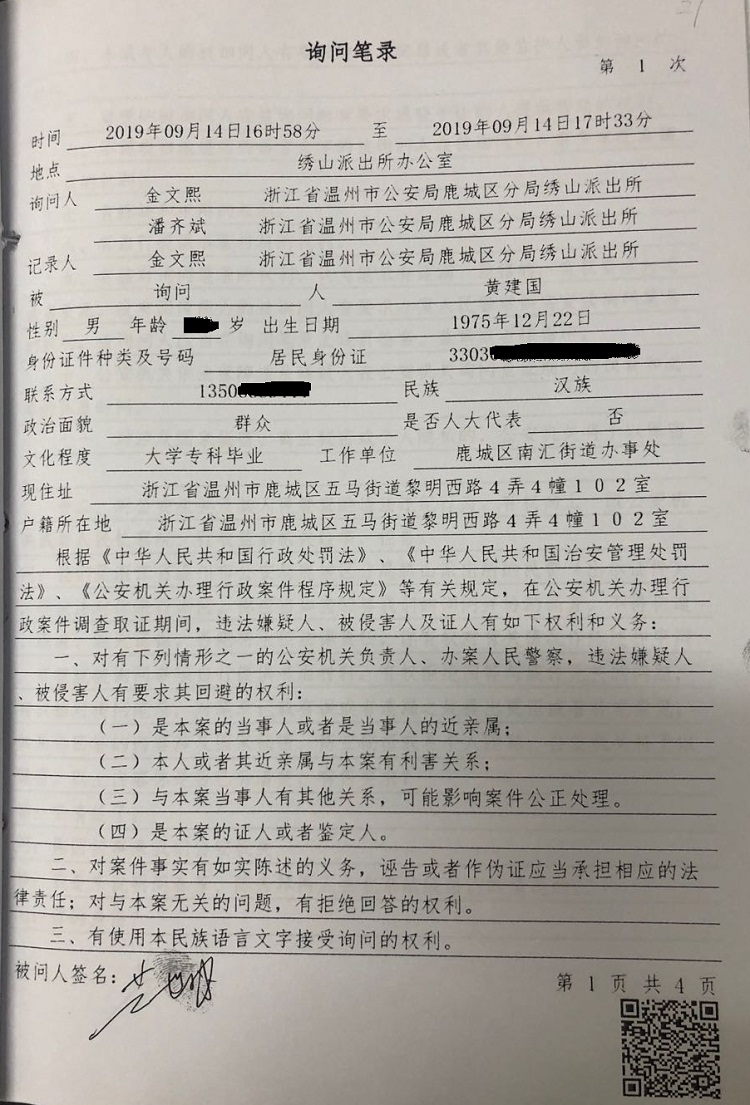 询问笔录
第 1 次
时间 2019年09月14日16时58分 至 2019年09月14日17时33分
地点 绣山派出所办公室
询问人 金文熙 浙江省温州市公安局鹿城区分局绣山派出所
潘齐斌 浙江省温州市公安局鹿城区分局绣山派出所
记录人 金文熙 浙江省温州市公安局鹿城区分局绣山派出所
被 询问 人 黄建国
性别 男 年龄 岁 出生日期 1975年12月22日
身份证件种类及号码 居民身份证 3303
联系方式 1350 民族 汉族
政治面貌 群众 是否人大代表 否
文化程度 大学专科毕业 工作单位 鹿城区南汇街道办事处
现住址 浙江省温州市鹿城区五马街道黎明西路4弄4幢102室
户籍所在地 浙江省温州市鹿城区五马街道黎明西路4弄4幢102室
根据《中华人民共和国行政处罚法》、《中华人民共和国治安管理处罚
法》、《公安机关办理行政案件程序规定》等有关规定，在公安机关办理行
政案件调查取证期间，违法嫌疑人、被侵害人及证人有如下权利和义务：
一、对有下列情形之一的公安机关负责人、办案人民警察，违法嫌疑人
、被侵害人有要求其回避的权利：
（一）是本案的当事人或者是当事人的近亲属；
（二）本人或者其近亲属与本案有利害关系；
（三）与本案当事人有其他关系，可能影响案件公正处理。
（四）是本案的证人或者鉴定人。
二、对案件事实有如实陈述的义务，诬告或者作伪证应当承担相应的法
律责任；对与本案无关的问题，有拒绝回答的权利。
三、有使用本民族语言文字接受询问的权利。
被问人签名：
第 1 页 共 4 页